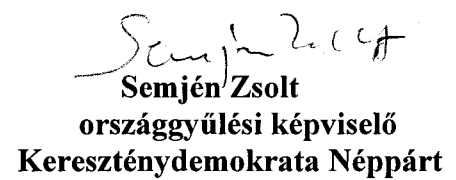 Semjén Zsolt
Semjén Zsolt
országgyűlési képviselő
Kereszténydemokrata Néppárt